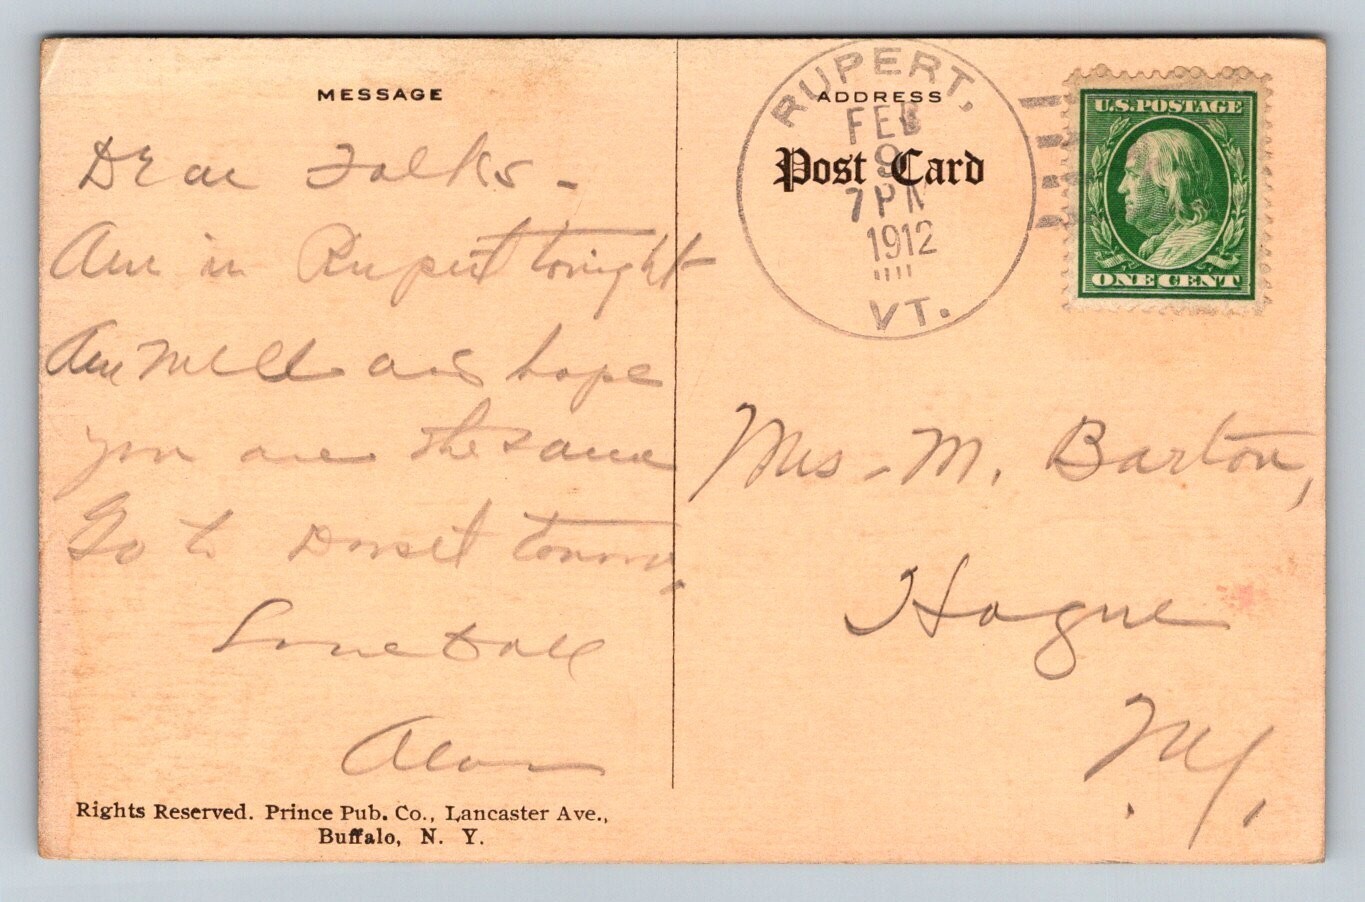 MESSAGE
Dear Folks -
Am in Rupert tonight
Am Well and hope
you are the same
Go to Dorset tomorrow,
Love to all
RUPERT,
FEB
9
7 PM
1912
VT.
ADDRESS
Post Card
U.S. POSTAGE
ONE CENT
Mrs - M. Barton,
Hague
N.Y.
Rights Reserved. Prince Pub. Co., Lancaster Ave.,
Buffalo, N. Y.